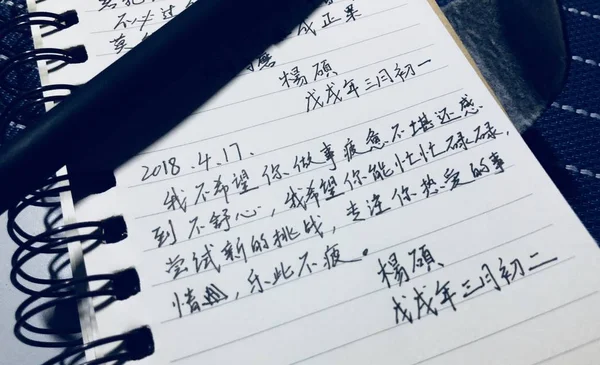 不必过
成正果
楊碩
戊戌年三月初一
2018.4.17.
我不希望你做事疲惫不堪还感
到不舒心，我希望你能忙忙碌碌，
尝试新的挑战，专注你热爱的事
情，乐此不疲。
楊碩
戊戌年三月初二